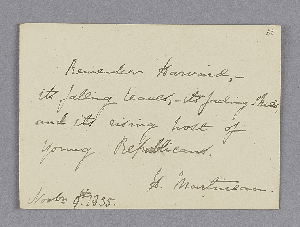 Remember Harvard,—
its falling leaves,—its fading
and its rising host of
young Republicans.
H. Martineau.
Novbr 9th 1835.